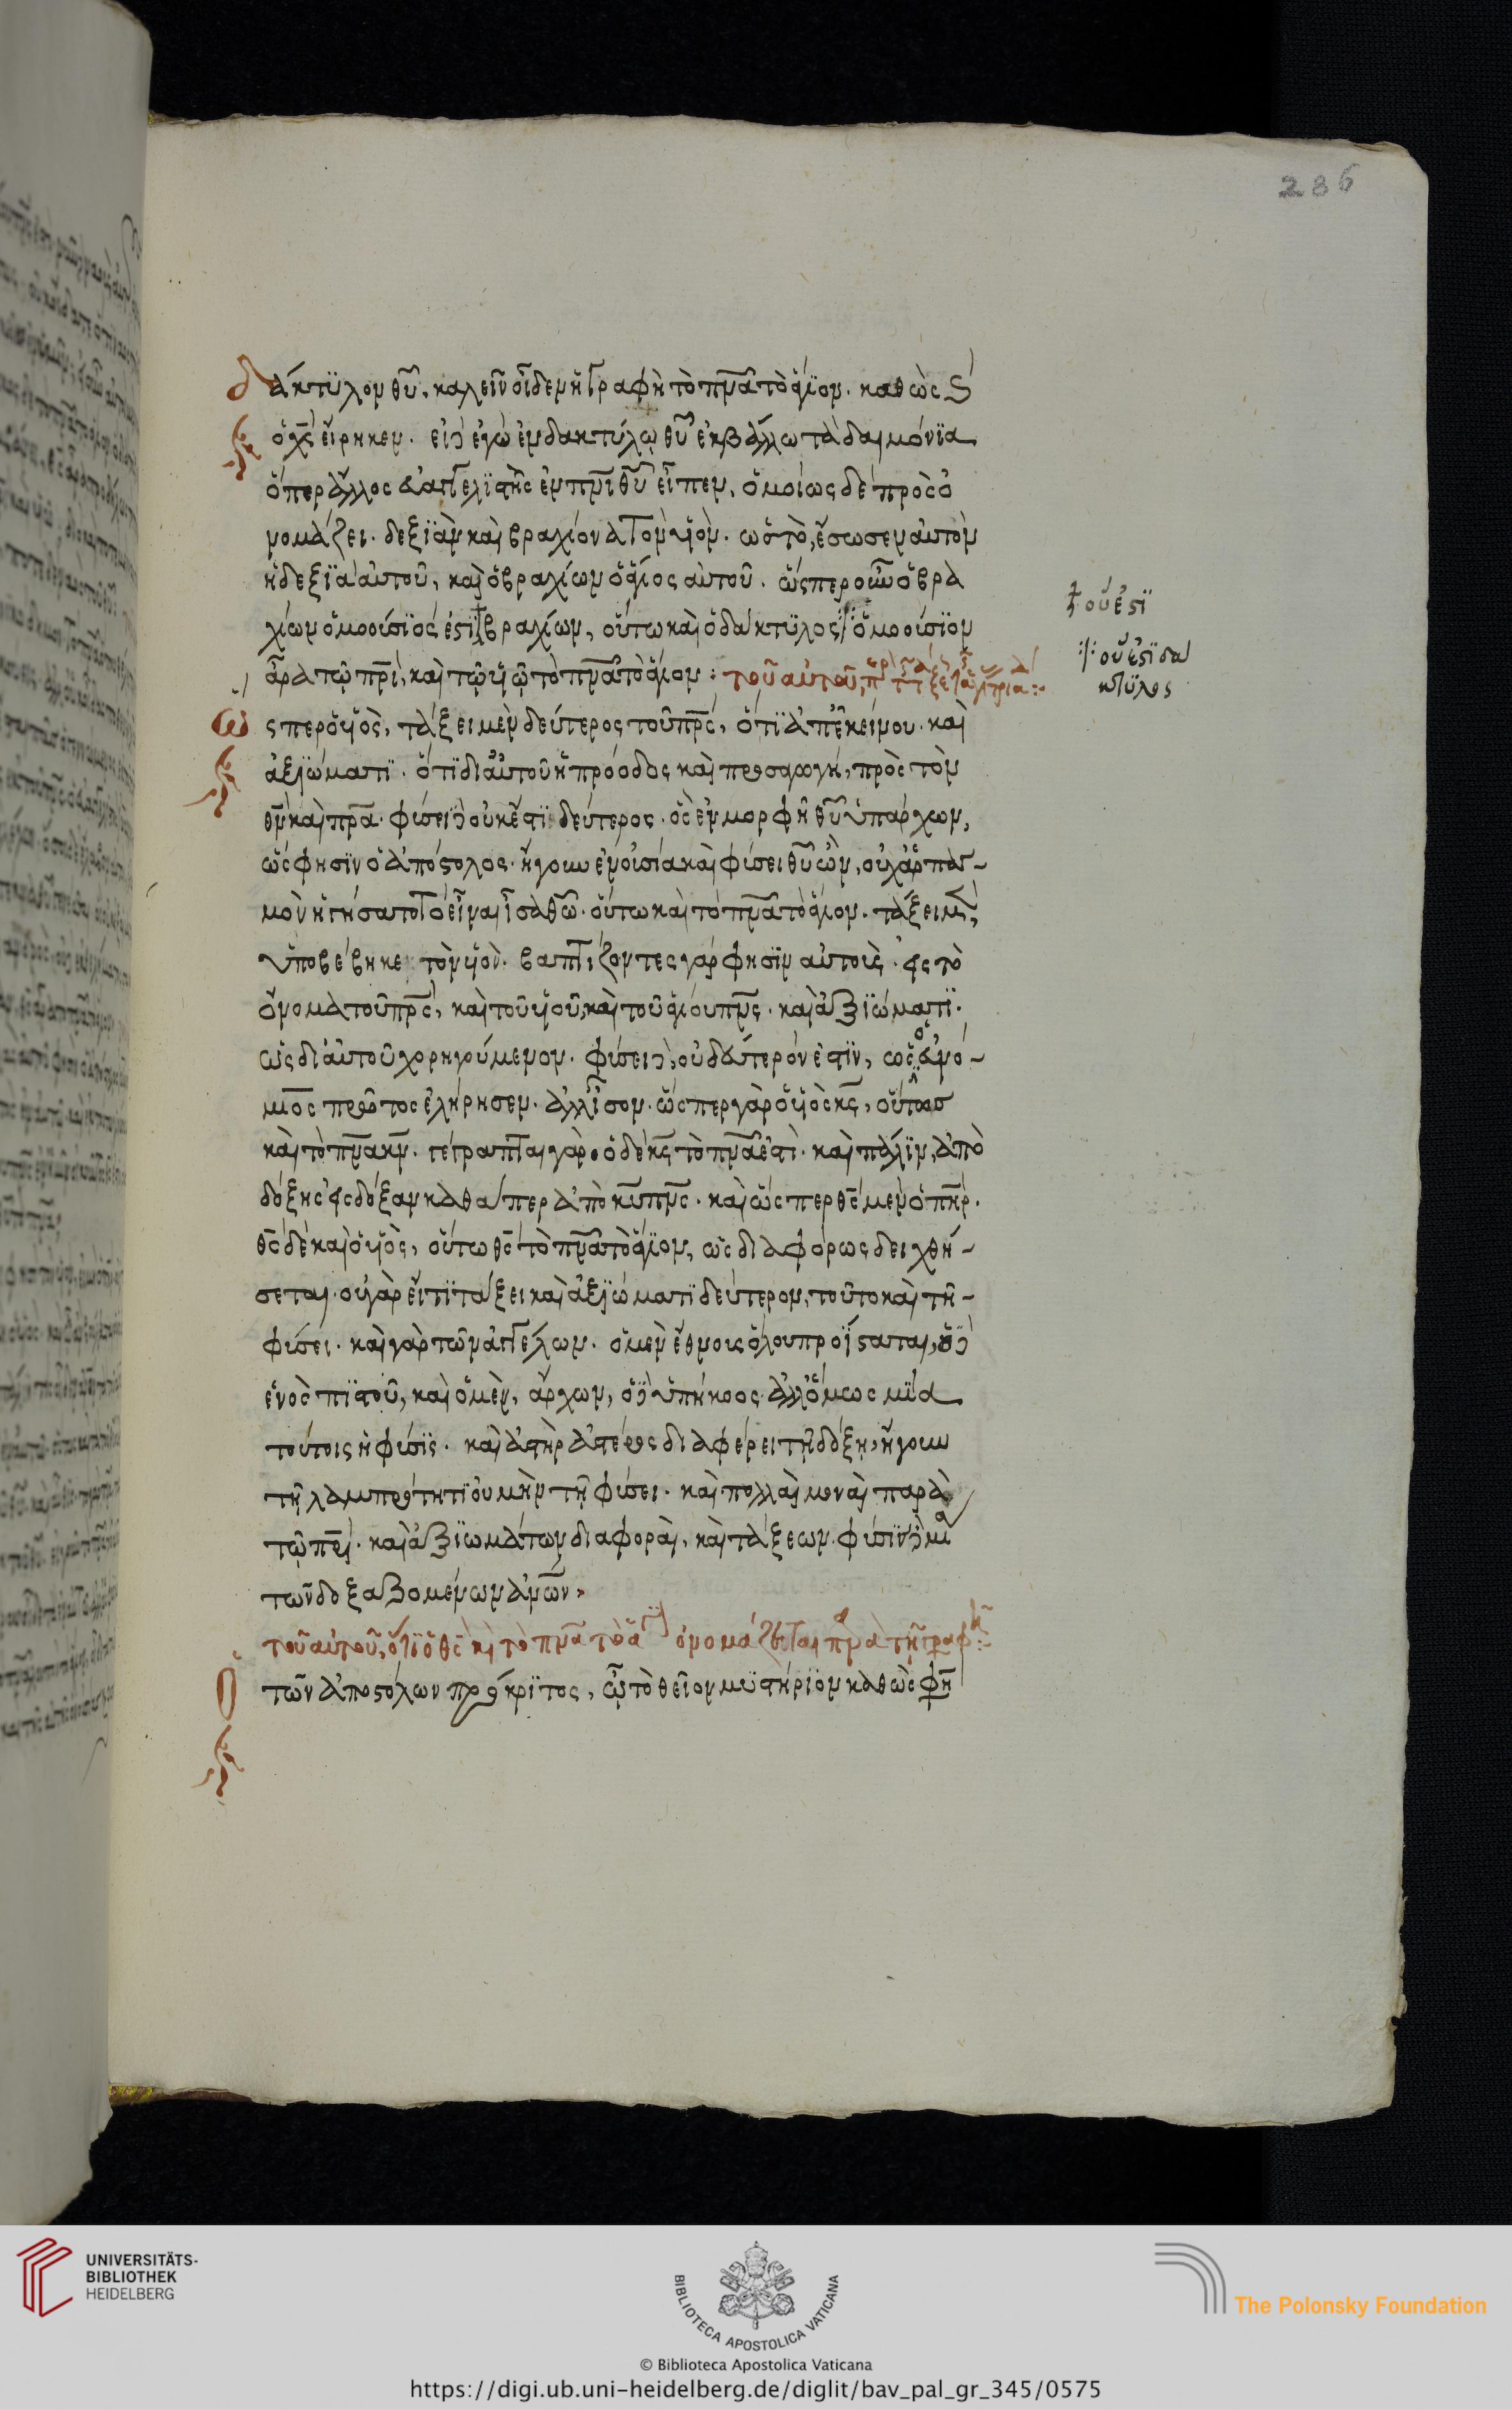 286
δάκτϋλον θῡ, καλεῖν οἶδεν ἡ γραφὴ τὸ πνᾱ τὸ ἅγϊον. καθὼς
ὁ χς̄ εἴρηκεν. εἰ δὲ ἐγὼ ἐν δακτύλῳ θῡ ἐκβάλλω τὰ δαιμόνϊα
ὅπερ ἄλλος εὐαγγελϊστὴς ἐν πνῑ θῡ εἶπεν, ὁμοίως δὲ πρὸς ὀ
νομάζει. δεξϊὰν καὶ βραχίονα τὸν υἱὸν. ὡς τὸ, ἔσωσεν αὐτὸν
ἡ δεξϊὰ αὐτοῦ, καὶ ὁ βραχίων ὁ ἅγιος αὐτοῦ. ὥσπερ οὖν ὁ βρα
χίων ὁμοούσϊος ἐστϊ βραχίων, οὕτω καὶ ὁ δάκτϋλος ὁμοούσϊον
ἆρα τῷ πρῑ, καὶ τῷ υἱῷ τὸ πνᾱ τὸ ἅγιον: τοῦ αὐτοῦ,
οὗ ἐστϊ
οὗ ἐστϊ δα
κτϋλος
ὥσπερ ὁ υἱὸς, τάξει μὲν δεύτερος τοῦ πρς̄, ὅτϊ ἀπ' ἐκείνου. καὶ
ἀξϊώματϊ. ὅτϊ δι' αὐτοῦ ἡ πρόοδος καὶ προσαγωγή, πρὸς τὸν
θν̄ καὶ πρᾱ. φύσει δὲ οὐκ ἔστϊ δεύτερος. ὃς ἐν μορφῇ θῡ ὑπάρχων,
ὥς φησϊν ὁ ἀπόστολος. ἤγουν ἐν οὐσία καὶ φύσει θῡ ὢν, οὐχ ἁρπαγ-
μὸν ἡγήσατο τὸ εἶναι ἶσα θῶ. οὕτω καὶ τὸ πνᾱ τὸ ἅγιον. τάξει μὲν
ὑποβέβηκε τὸν υἱὸν. βαπτίζοντες γάρ φησϊν αὐτοὺς. εἰς τὸ
ὄνομα τοῦ πρς̄, καὶ τοῦ υἱοῦ, καὶ τοῦ ἁγίου πνς̄. καὶ ἀξϊώματϊ.
ὡς δι' αὐτοῦ χορηγούμενον. φύσει δὲ, οὐ δεύτερόν ἐστϊν, ὡς ὁ εὐνό-
μιος πρῶτος ἐλήρησεν. ἀλλ' ἶσον. ὥσπερ γὰρ ὁ υἱὸς κς̄, οὕτως
καὶ τὸ πνᾱ κν̄. γέγραπται γὰρ. ὁ δὲ κς̄ τὸ πνᾱ ἐστὶ. καὶ πάλϊν, ἀπὸ
δόξης εἰς δόξαν καθάπερ ἀπὸ κῡ πνς̄. καὶ ὥσπερ θς̄ μὲν ὁ πηρ̄.
θς̄ δὲ καὶ ὁ υἱὸς, οὕτω θς̄ τὸ πνᾱ τὸ ἅγϊον, ὡς διαφόρως δειχθή-
σεται. οὐ γὰρ εἴ τϊ τάξει καὶ ἀξϊώματϊ δεύτερον, τοῦτο καὶ τῆ-
φύσει. καὶ γὰρ τῶν ἀγγέλων. ὁ μὲν ἔθνους ὅλου προΐσταται, ὁ δὲ
ἑνὸς πϊστοῦ, καὶ ὁ μὲν, ἄρχων, ὁ δὲ ὑπήκοος. ἀλλ' ὅμως μϊα
τούτοις ἡ φύσϊς. καὶ ἀστὴρ ἀστέρος διαφέρει τῆ δόξη, ἤγουν
τῆ λαμπρότητϊ οὐ μὴν τῆ φύσει. καὶ πολλαὶ μοναὶ παρὰ
τῷ πρῑ. καὶ ἀξϊωμάτων διαφοραὶ, καὶ τάξεων. φύσϊν δὲ μία
τῶν δοξαζομένων ἀνῶν.
τοῦ αὐτοῦ, ὅτϊ ὁ θς̄ καὶ τὸ πνᾱ τὸ ἅγϊον ὀνομάζεται παρὰ τῆ γραφῆ:
ὁ τῶν ἀποστόλων πρόκρϊτος, ᾧ τὸ θεῖον μϋστήρϊον καθὼς φη
UNIVERSITÄTS-
BIBLIOTHEK
HEIDELBERG
BIBLIOTECA APOSTOLICA VATICANA
© Biblioteca Apostolica Vaticana
The Polonsky Foundation
https://digi.ub.uni-heidelberg.de/diglit/bav_pal_gr_345/0575